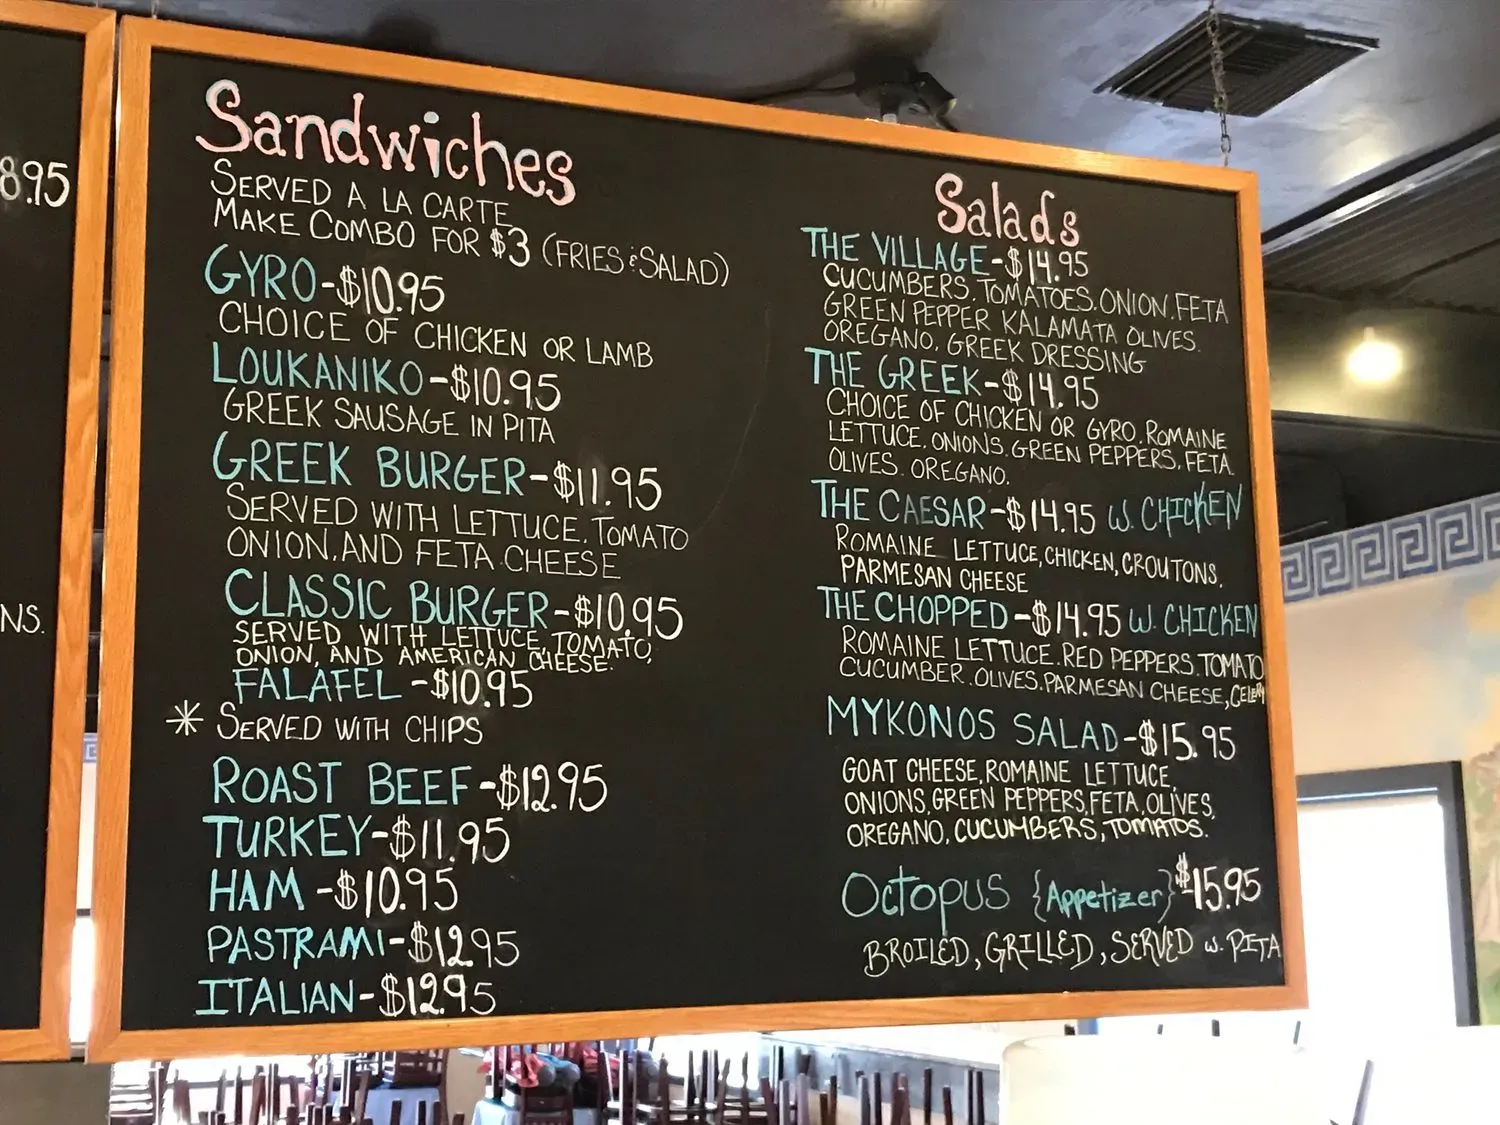 8.95
NS.
Sandwiches
SERVED A LA CARTE
MAKE COMBO FOR $3 (FRIES & SALAD)
GYRO-$10.95
CHOICE OF CHICKEN OR LAMB
LOUKANIKO-$10.95
GREEK SAUSAGE IN PITA
GREEK BURGER-$11.95
SERVED WITH LETTUCE, TOMATO
ONION, AND FETA CHEESE
CLASSIC BURGER-$10.95
SERVED WITH LETTUCE, TOMATO,
ONION, AND AMERICAN CHEESE.
FALAFEL-$10.95
* SERVED WITH CHIPS
ROAST BEEF-$12.95
TURKEY-$11.95
HAM-$10.95
PASTRAMI-$12.95
ITALIAN-$12.95
Salads
THE VILLAGE-$14.95
CUCUMBERS. TOMATOES. ONION. FETA
GREEN PEPPER KALAMATA OLIVES.
OREGANO, GREEK DRESSING
THE GREEK-$14.95
CHOICE OF CHICKEN OR GYRO. ROMAINE
LETTUCE. ONIONS. GREEN PEPPERS, FETA
OLIVES. OREGANO.
THE CAESAR-$14.95 W. CHICKEN
ROMAINE LETTUCE, CHICKEN, CROUTONS,
PARMESAN CHEESE
THE CHOPPED-$14.95 W. CHICKEN
ROMAINE LETTUCE. RED PEPPERS. TOMATO
CUCUMBER. OLIVES. PARMESAN CHEESE, CELERY
MYKONOS SALAD-$15.95
GOAT CHEESE, ROMAINE LETTUCE,
ONIONS, GREEN PEPPERS, FETA, OLIVES,
OREGANO, CUCUMBERS, TOMATOS.
OCTOPUS {APPETIZER} $15.95
BROILED, GRILLED, SERVED W. PITA